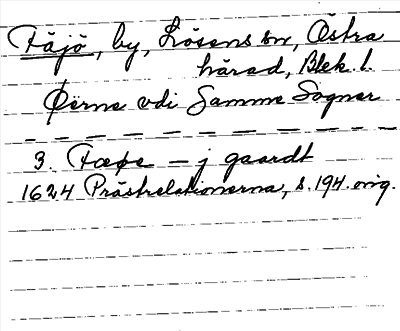 Täjö, by, Lösens sn, Östra
härad, Blek. l.
Øerne vdi Samme Sogner
3. Tæøe - j gaardt
1624 Prästrelationerna, s. 194. orig.